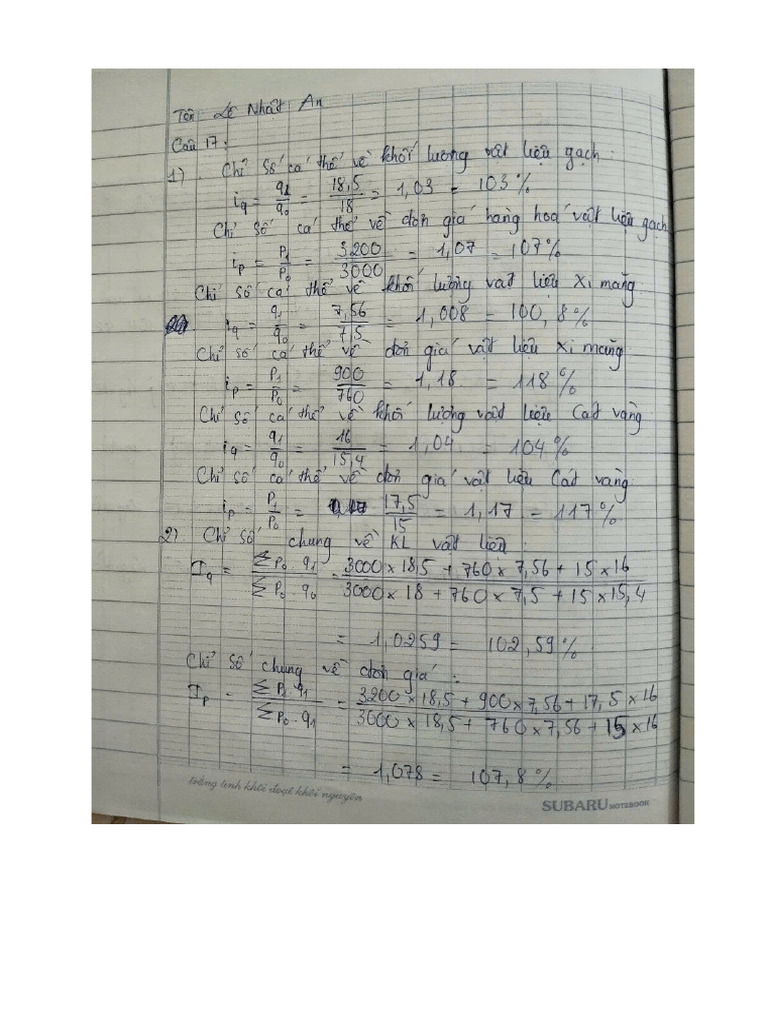 Tên Lê Nhất An
Câu 17:
1) Chỉ số cá thể về khối lượng vật liệu gạch:
i_q = q_1/q_0 = 18,5/18 = 1,03 = 103%
Chỉ số cá thể về đơn giá hàng hoá vật liệu gạch
i_p = P_1/P_0 = 3200/3000 = 1,07 = 107%
Chỉ số cá thể về khối lượng vật liệu xi măng.
i_q = q_1/q_0 = 7,56/7,5 = 1,008 = 100,8%
Chỉ số cá thể về đơn giá vật liệu xi măng
i_p = P_1/P_0 = 900/760 = 1,18 = 118%
Chỉ số cá thể về khối lượng vật liệu Cát vàng
i_q = q_1/q_0 = 16/15,4 = 1,04 = 104%
Chỉ số cá thể về đơn giá vật liệu Cát vàng
i_p = P_1/P_0 = 17,5/15 = 1,17 = 117%
2) Chỉ số chung về KL vật liệu:
I_q = ΣP_0.q_1/ΣP_0.q_0 = 3000×18,5 + 760×7,56 + 15×16/3000×18 + 760×7,5 + 15×15,4
= 1,0259 = 102,59%.
Chỉ số chung về đơn giá:
I_p = ΣP_1.q_1/ΣP_0.q_1 = 3200×18,5 + 900×7,56 + 17,5×16/3000×18,5 + 760×7,56 + 15×16
= 1,078 = 107,8%
SUBARU NOTEBOOK